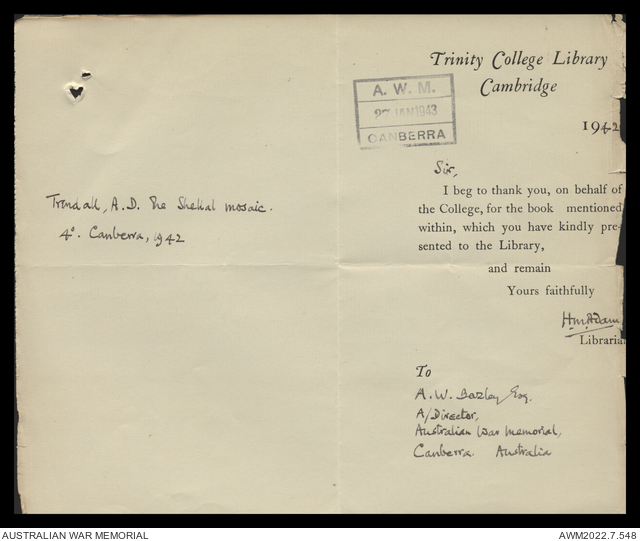 Trinity College Library
Cambridge
A. W. M.
27 JAN 1943
CANBERRA
1942
Sir,
I beg to thank you, on behalf of
the College, for the book mentioned
within, which you have kindly pre-
sented to the Library,
and remain
Yours faithfully
H.M.Adams
Libraria
To
A. W. Bazley Esq.
A/Director,
Australian War Memorial,
Canberra. Australia
Trendall, A.D. The Shellal mosaic.
4º. Canberra, 1942
AUSTRALIAN WAR MEMORIAL
AWM2022.7.548